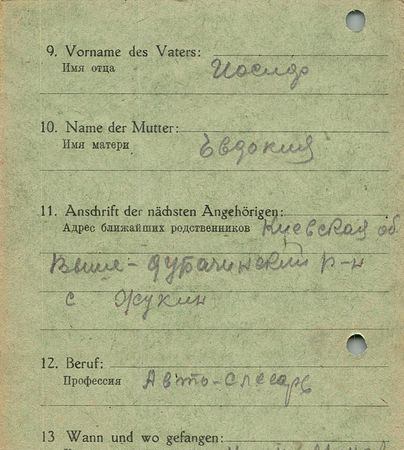 9. Vorname des Vaters:
Имя отца
Иосидо
10. Name der Mutter:
Имя матери
Евдокия
11. Anschrift der nächsten Angehörigen:
Адрес ближайших родственников Киевская об
Выше-дубачинский р-н
с Жукин
12. Beruf:
Профессия Авто-слесарь
13 Wann und wo gefangen: